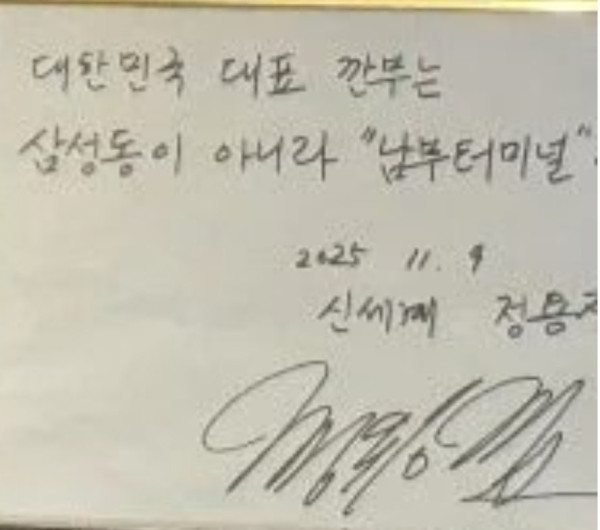 대한민국 대표 깐부는
삼성동이 아니라 "남부터미널".
2025 11. 9
신세계 정용